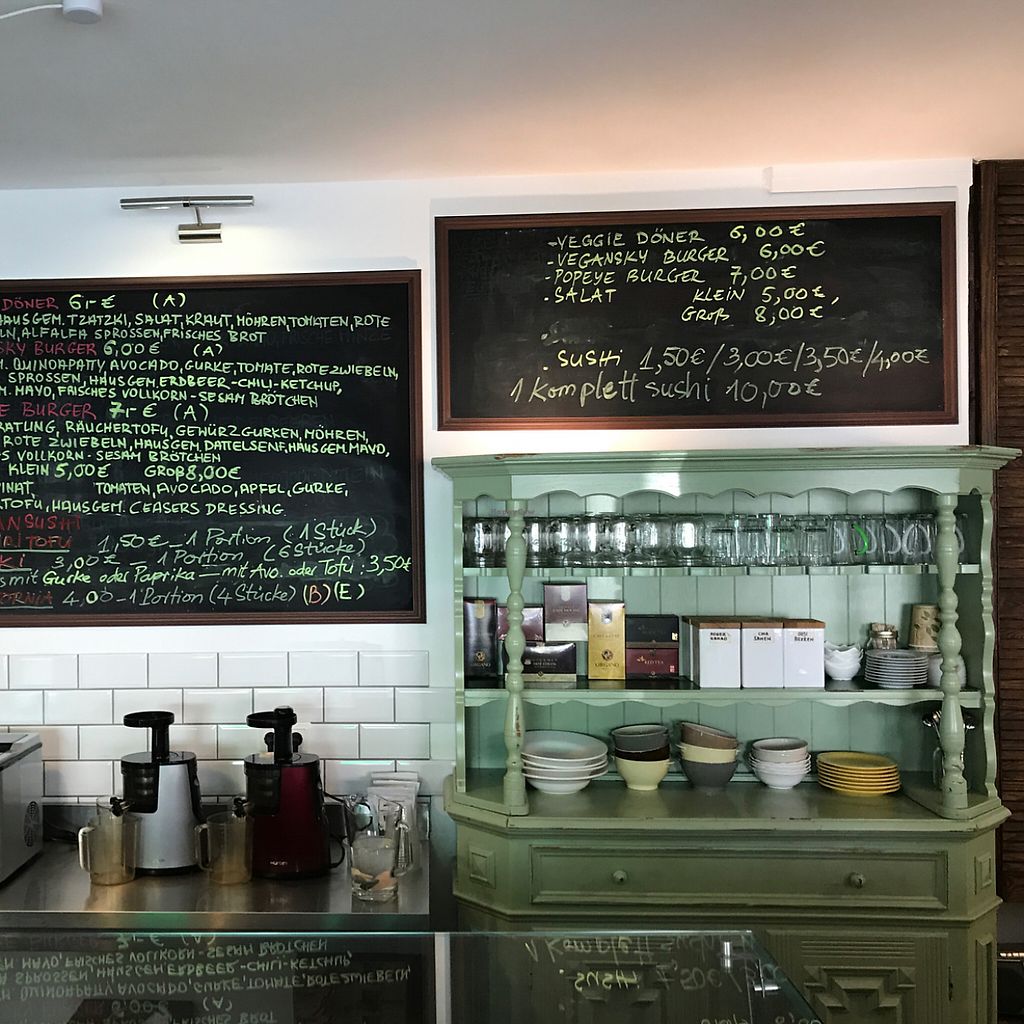 DÖNER 6,-€ (A)
HAUSGEM. TZATZKI, SALAT, KRAUT, MÖHREN, TOMATEN, ROTE
LN, ALFALFA SPROSSEN, FRISCHES BROT
SKY BURGER 6,00€ (A)
M. QUINOAPATTY AVOCADO, GURKE, TOMATE, ROTE ZWIEBELN,
SPROSSEN, HAUSGEM. ERDBEER-CHILI-KETCHUP,
M. MAYO, FRISCHES VOLLKORN-SESAM BRÖTCHEN
E BURGER 7,-€ (A)
RATUNG, RÄUCHERTOFU, GEWÜRZGURKEN, MÖHREN,
ROTE ZWIEBELN, HAUSGEM. DATTELSENF, HAUSGEM. MAYO,
S VOLLKORN-SESAM BRÖTCHEN
KLEIN 5,00€ GROß 8,00€
INAT, TOMATEN, AVOCADO, APFEL, GURKE,
TOFU, HAUSGEM. CEASERS DRESSING.
ANSUSHI
IRITOFU 1,50€ - 1 Portion (1 Stück)
KI 3,00€ - 1 Portion (6 Stücke)
s mit Gurke oder Paprika - mit Avo. oder Tofu: 3,50€
ORNIA 4,00 - 1 Portion (4 Stücke) (B) (E)
-VEGGIE DÖNER 6,00€
-VEGANSKY BURGER 6,00€
-POPEYE BURGER 7,00€
.SALAT KLEIN 5,00€,
GROß 8,00€
.SUSHi 1,50€/3,00€/3,50€/4,00€
1 Komplett sushi 10,00€